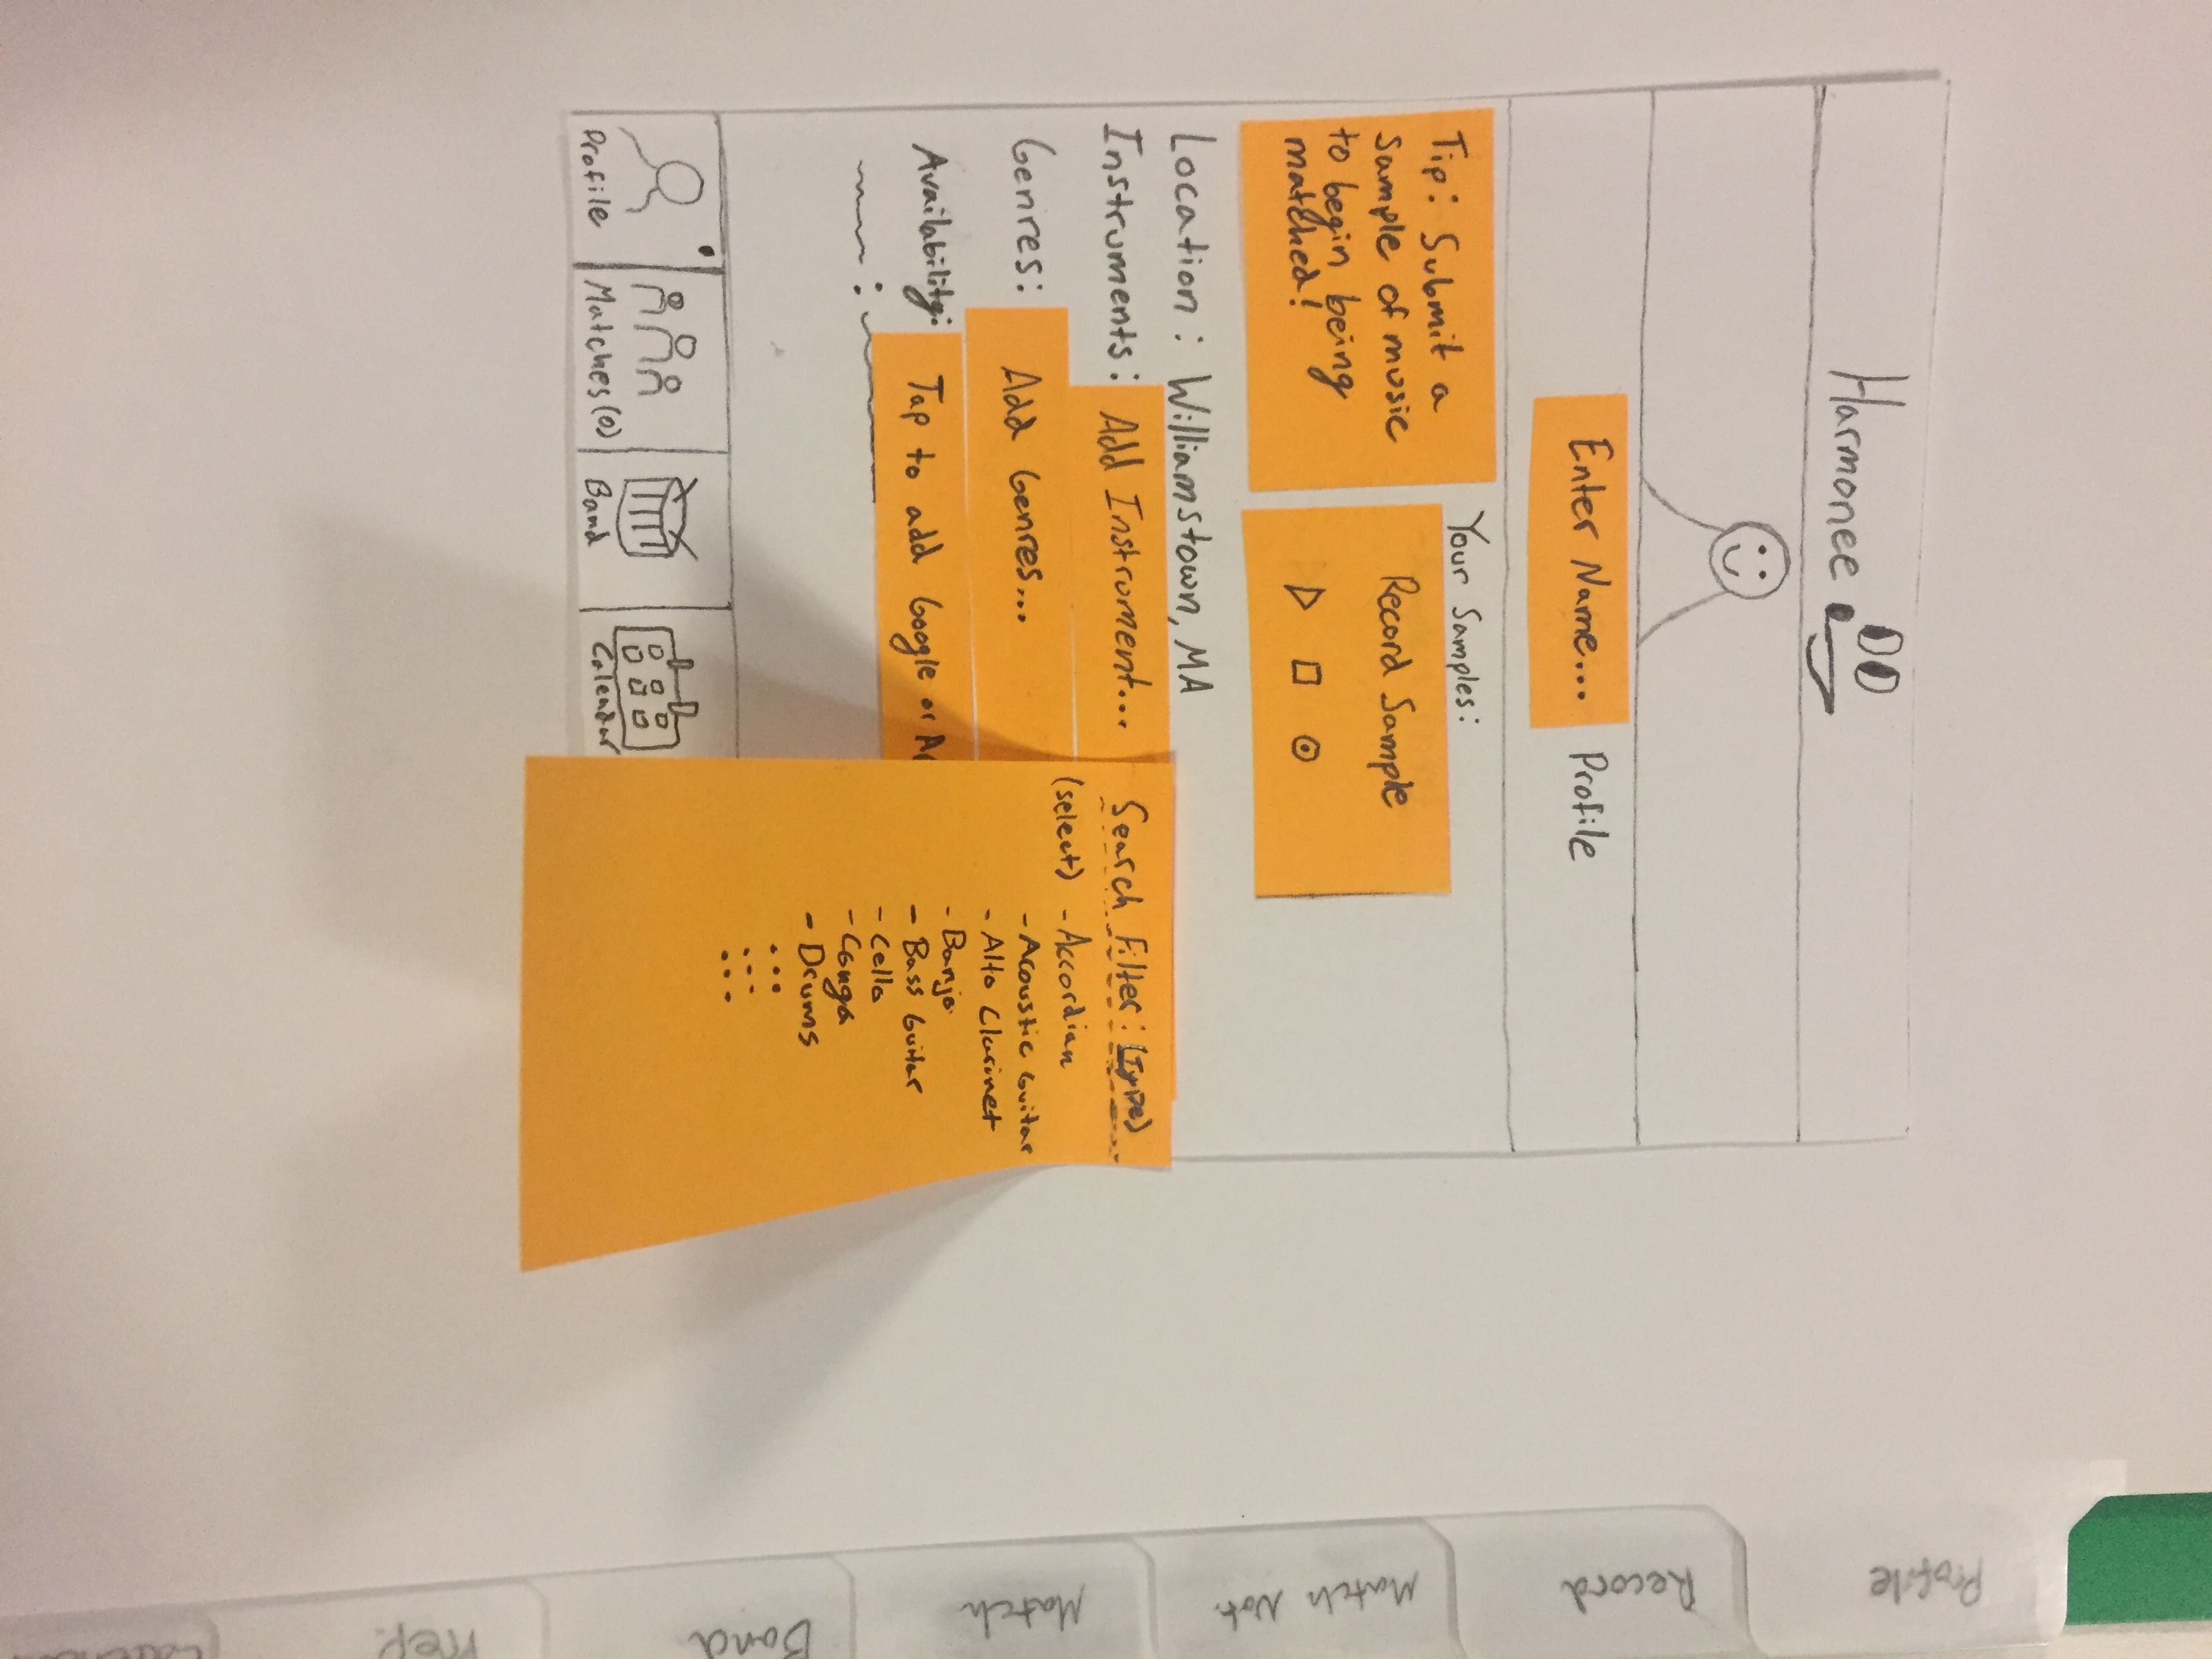 Harmonee
Enter Name... Profile
Tip: Submit a
Sample of music
to begin being
matched!
Your Samples:
Record Sample
Location: Williamstown, MA
Instruments: Add Instrument...
Genres: Add Genres...
Availability: Tap to add Google or
Search Filter: (Type)
(select) - Accordian
- Acoustic Guitar
- Alto Clarinet
- Banjo
- Bass Guitar
- Cello
- Conga
- Drums
...
...
...
Profile
Matches (0)
Band
Calendar
Profile
Record
Match Not.
Match
Band
Rep.